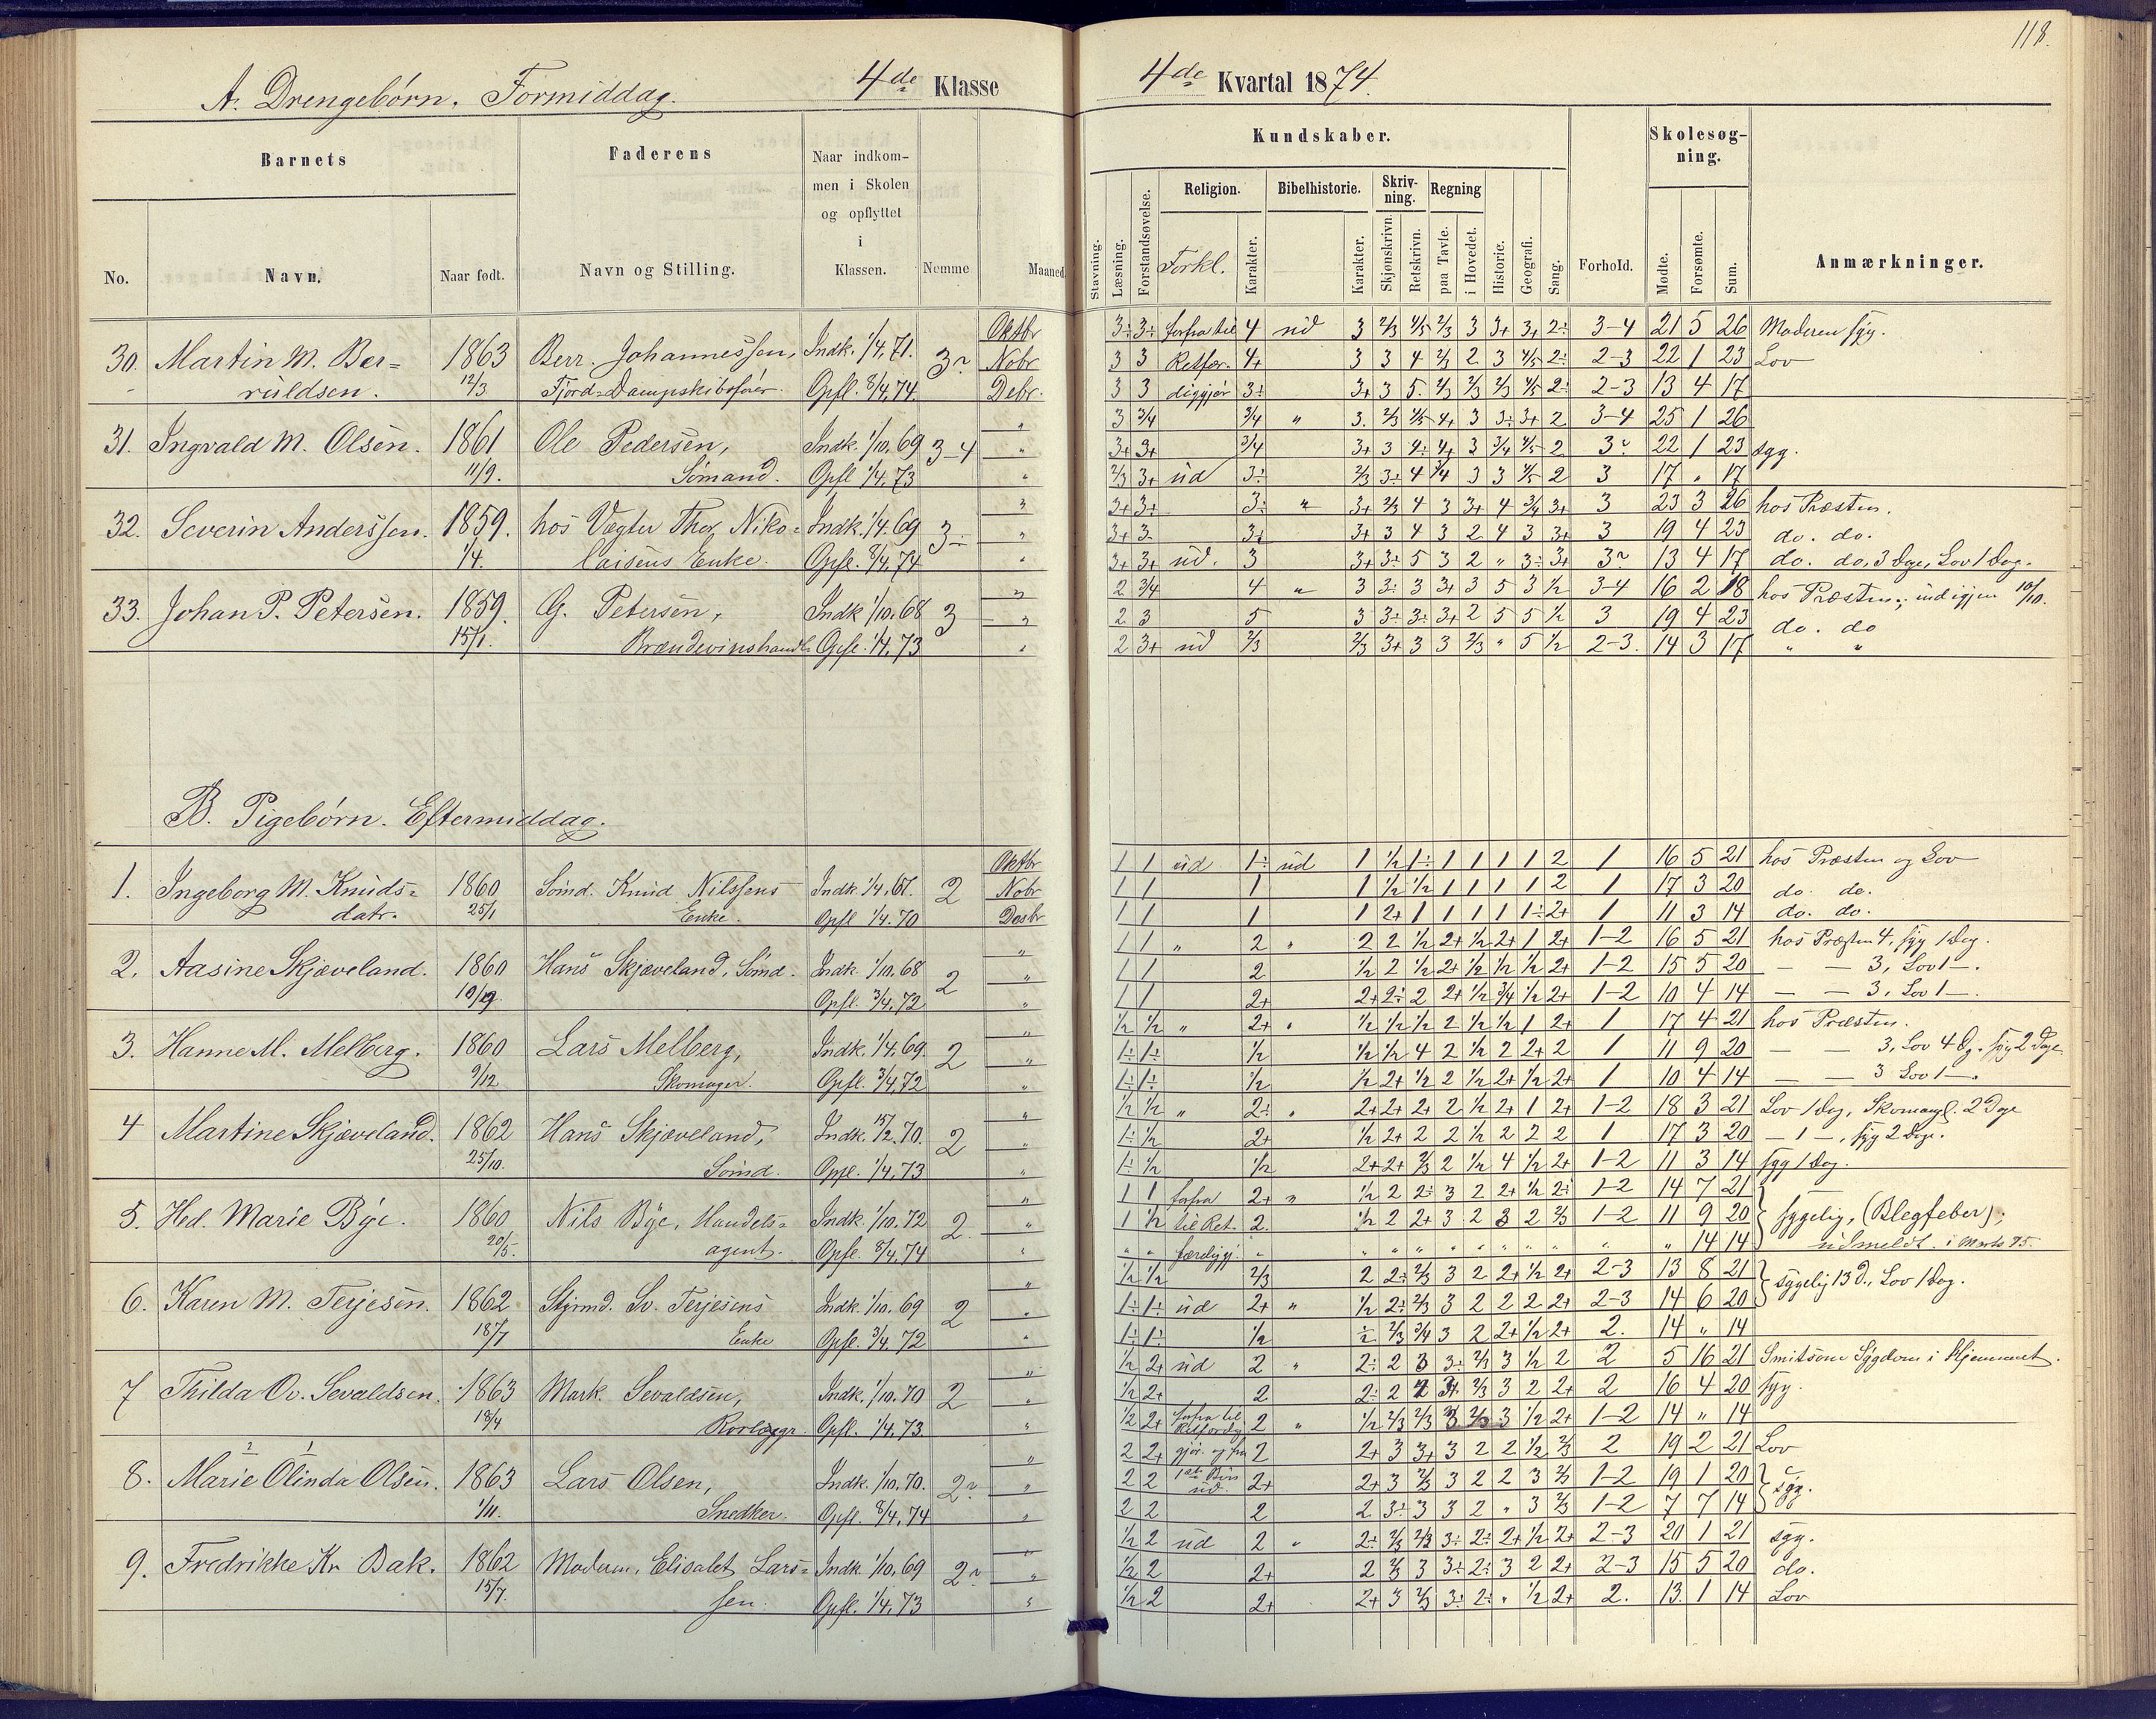 118.
A. Drengebørn. Formiddag.
4de Klasse
4de Kvartal 1874.
Barnets
Faderens
Naar indkom-
men i Skolen
og opflyttet
i
Klassen.
No.
Navn.
Naar født.
Navn og Stilling.
Nemme
Maaned.
Kundskaber.
Skolesøg-
ning.
Stavning.
Læsning.
Forstandsøvelse.
Religion.
Forkl.
Karakter.
Bibelhistorie.
Karakter.
Skriv-
ning.
Skjønskrivn.
Retskrivn.
Regning
paa Tavle.
i Hovedet.
Historie.
Geografi.
Sang.
Forhold.
Mødte.
Forsømte.
Sum.
Anmærkninger.
30. Martin M. Ber= 1863 Berr. Johannessen, Indk. 1/4,71. Oktbr
ruldsen. 12/3 Fjord=Dampskibsfører. Opfl. 8/4,74. Nobr
Debr.
3÷ 3÷ forfra til 4 ud 3 2/3 4/5 2/3 3 3+ 3+ 2÷ 3-4 21 5 26 Moderen syg.
3 3 Retfær- 4+ 3 3 4 2/3 2 3 4/5 2÷ 2-3 22 1 23 Lov
3 3 diggjør 3÷ 3+ 3 5. 2/3 2/3 2/3 4/5 2÷ 2-3 13 4 17
31. Ingvald M. Olsen. 1861 Ole Pedersen, Indk. 1/10,69 3-4
11/9. Sømand. Opfl 1/4,73
3 3/4 3/4 " 3. 2/3 4/5 4+ 3 3÷ 3+ 2 3-4 25 1 26
3+ 3+ 3/4 3+ 3 4÷ 4+ 3 3/4 4/5 2 22 1 23 syg.
2/3 3+ ud 3÷ 2/3 3÷ 4 3/4 3 3 4/5 2 3 17 " 17
32. Severin Anderssen. 1859. hos Vægter Thor Niko= Indk. 1/4,69 3÷
1/4. laisens Enke. Opfl. 8/4,74
3+ 3+ 3÷ " 3+ 2/3 4 3 3+ 4 3/4 3+ 3 23 3 26 hos Præsten.
3+ 3 3+ 3+ 3 4 3 2 4 3 3+ 3 19 4 23 do. do.
3+ 3+ ud. 3 3+ 3÷ 5 3 2 " 3÷ 3+ 13 4 17 do. do, 3 Dage, Lov 1 Dag.
33. Johan P. Petersen. 1859. G. Petersen, Indk 1/10,68 3
15/1. Brændevinshandl. Opfl. 1/4,73
2 3/4 4 " 3 3÷ 3 3+ 3 5 3 1/2 3-4 16 2 18 hos Præsten; ind igjen 10/10.
2 3 5 3 3÷ 3÷ 3+ 2 5 5 1/2 3 19 4 23 do. do
2 3+ ud 2/3 2/3 3+ 3 3 2/3 " 5 1/2 2-3. 14 3 17 " "
B. Pigebørn. Eftermiddag.
1. Ingeborg M. Knuds= 1860 Sømd. Knud Nilssens Indk. 1/4,67. 2 Oktbr
datr. 25/1 Enke. Opfl 1/4.70 Nobr
Desbr
1 1 ud 1÷ ud 1 1/2 1÷ 1 1 1 1 2 1 16 5 21 hos Præsten og Lov
1 1 1 1 1/2 1/2 1 1 1 1 2 1 17 3 20 do. do.
1 1 1 1 2+ 1 1 1 1 1÷ 2+ 1 11 3 14 do. do.
2. Aasine Skjæveland. 1860 Hans Skjæveland, Sømd. Indk. 1/10.68 2
Opfl. 3/4,72
1 1 " 2 " 2 2 1/2 2+ 1/2 2+ 1 2+ 1-2 16 5 21 hos Præsten 4, syg 1 Dag.
1 1 2 1/2 2 1/2 2+ 1/2 1/2 1/2 2+ 1-2 15 5 20 — — 3, Lov 1 —.
1 1 2+ 2+ 2÷ 2 2+ 1/2 3/4 1/2 2+ 1-2 10 4 14 — — 3, Lov 1 —.
3. Hanne M. Melberg. 1860 Lars Melberg, Indk. 1/4,69. 2
9/12 Skomager. Opfl. 3/4,72
1/2 1/2 " 2+ " 1/2 1/2 1/2 2 1/2 1/2 1 2+ 1 17 4 21 hos Præsten.
1÷ 1÷ 1/2 1/2 1/2 4 2 1/2 2 2+ 2 1 11 9 20 — — 3, Lov 4 Dg. syg 2 Dage
1÷ 1÷ 1/2 1/2 2+ 1/2 2 1/2 2+ 1/2 2+ 1 10 4 14 — — 3 Lov 1 —.
4 Martine Skjæveland. 1862 Hans Skjæveland, Indk. 15/2.70. 2
25/10. Sømd. Opfl. 1/4,73
1/2 1/2 " 2÷ " 2+ 2+ 2+ 2 1/2 2+ 1 2+ 1-2 18 3 21 Lov 1 Dag, Skomangl. 2 Dage
1÷ 1/2 2+ 1/2 2+ 2 2 1/2 2 2 2 1 17 3 20 — 1 —, syg 2 Dage.
1÷ 1/2 1/2 2+ 2+ 2/3 2 1/2 4 1/2 2+ 1-2 11 3 14 syg 1 Dag.
5. Hed. Marie Bye. 1860 Nils Bye, Handels= Indk. 1/10.72 2.
20/5. agent. Opfl. 8/4,74
1 1 forfra 2+ " 1/2 2 2÷ 3 2 2+ 1/2 2÷ 1-2 14 7 21
1 1/2 til Ret- 2. 1/2 2 2+ 3 2 3 2 2/3 1-2 11 9 20 sygelig, (Blegfeber);
" " færdiggj. " " " " " " " " " " " 14 14 udmeldt i Marts 75.
6. Karen M. Terjesen. 1862 Styrmd. Sv. Terjesens Indk. 1/10.69 2
18/7 Enke Opfl. 3/4,72
1/2 1/2 2/3 2 2÷ 2/3 3 2 2+ 1/2 2+ 2-3 13 8 21 sygelig 13 d., Lov 1 Dag.
1÷ 1÷ ud 2+ " 1/2 2÷ 2/3 3 2 2 2 2+ 2-3 14 6 20
1÷ 1÷ 1/2 1/2 2/3 3/4 3 2 2+ 1/2 2+ 2. 14 " 14
7 Thilda Ov. Sevaldsen. 1863 Mark. Sevaldsen, Indk. 1/10.70 2
18/4 Opfl. 1/4,73
1/2 2+ ud 2 " 2÷ 2 3 3÷ 2/3 3 1/2 2 2 5 16 21 Smitsom Sygdom i Hjemmet.
1/2 2+ 2 2÷ 2 2 3+ 2/3 3 2 2+ 2 16 4 20 syg.
1/2 2+ forfra til 2 " 1/2 2/3 2/3 3 2/3 3 1/2 2+ 1-2 14 " 14
Retfærdig
8. Marie Olinda Olsen. 1863 Lars Olsen, Indk. 1/10,70.
1/11. Snedker. Opfl. 8/4,74
2 2+ gjør. og fra 2 2+ 3 3+ 3 2 2 1/2 2/3 2 19 2 21 Lov
2 2 ud. 2+ 2+ 3 2/3 3 2 2 3 2/3 1-2 19 1 20 syg.
2 2 2 2 3÷ 3 3 2 " 3 2/3 1-2 7 7 14
9. Fredrikke Kr. Bak. 1862 Moderen, Elisabet Lars= Indk. 1/10,69
15/7. sen. Opfl. 1/4,73
1/2 2 ud 2 " 2÷ 2/3 2/3 3÷ 2÷ 2+ 1/2 2+ 2-3 20 1 21 syg.
1/2 2 2+ 2 2/3 3 3÷ 2÷ 3 2 2+ 2-3 15 5 20 do.
1/2 2 2+ 2+ 3 2/3 3÷ 2÷ " 1/2 2+ 2. 13. 1 14 Lov